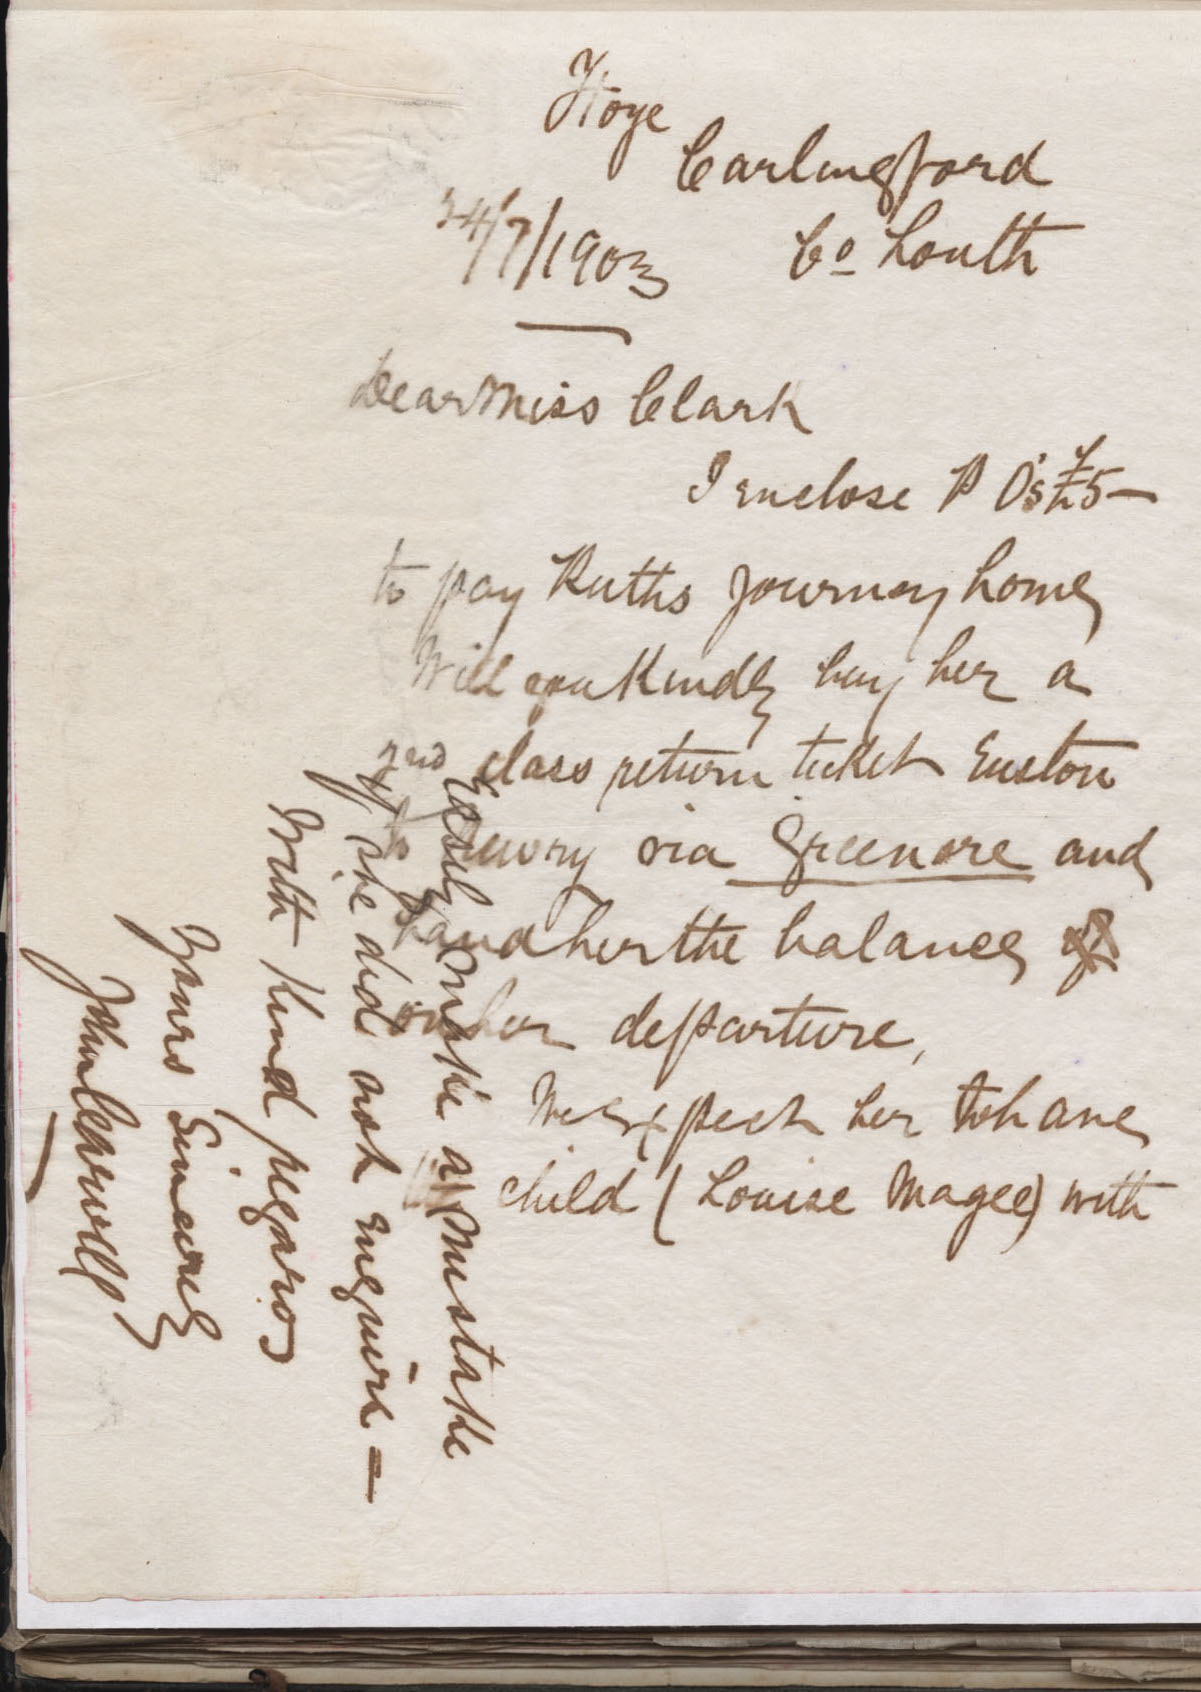 Carlingford
Co Louth
24/7/1903
Dear Miss Clark
I enclose P O's £5-
to pay Ruths journey home
Will you kindly buy her a
2nd class return ticket Euston
to Newry via Greenore and
hand her the balance
on her departure,
We expect her to have
child (Louise Magee) with
Easily make a mistake
if she did not enquire =
With kind regards
Yours Sincerely